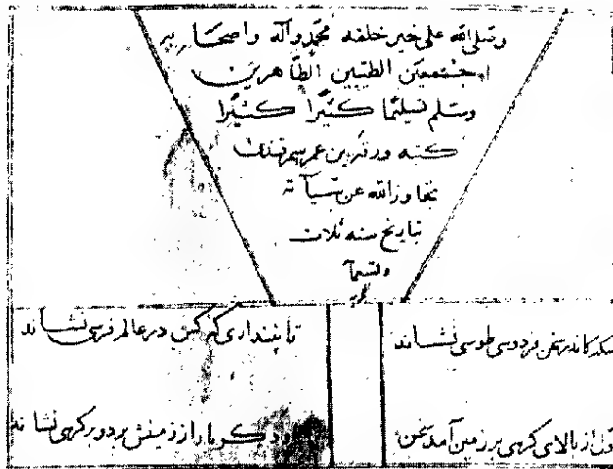 وصلی الله علی خیر خلقه محمد وآله واصحابه
اجمعین الطیبین الطاهرین
وسلم تسلیما کثیرا کثیرا
کتبه بن عمر سمرقندی
تجاوز الله عن سیآته
بتاریخ سنه ثلاث
وتسعمآ
سکه کاندر سخن فردوسی طوسی نشاند
تا نپنداری که کس در عالم فرسی نشاند
اول از بالای کرسی بر زمین آمد سخن
بار از زمینش برد و بر کرسی نشاند